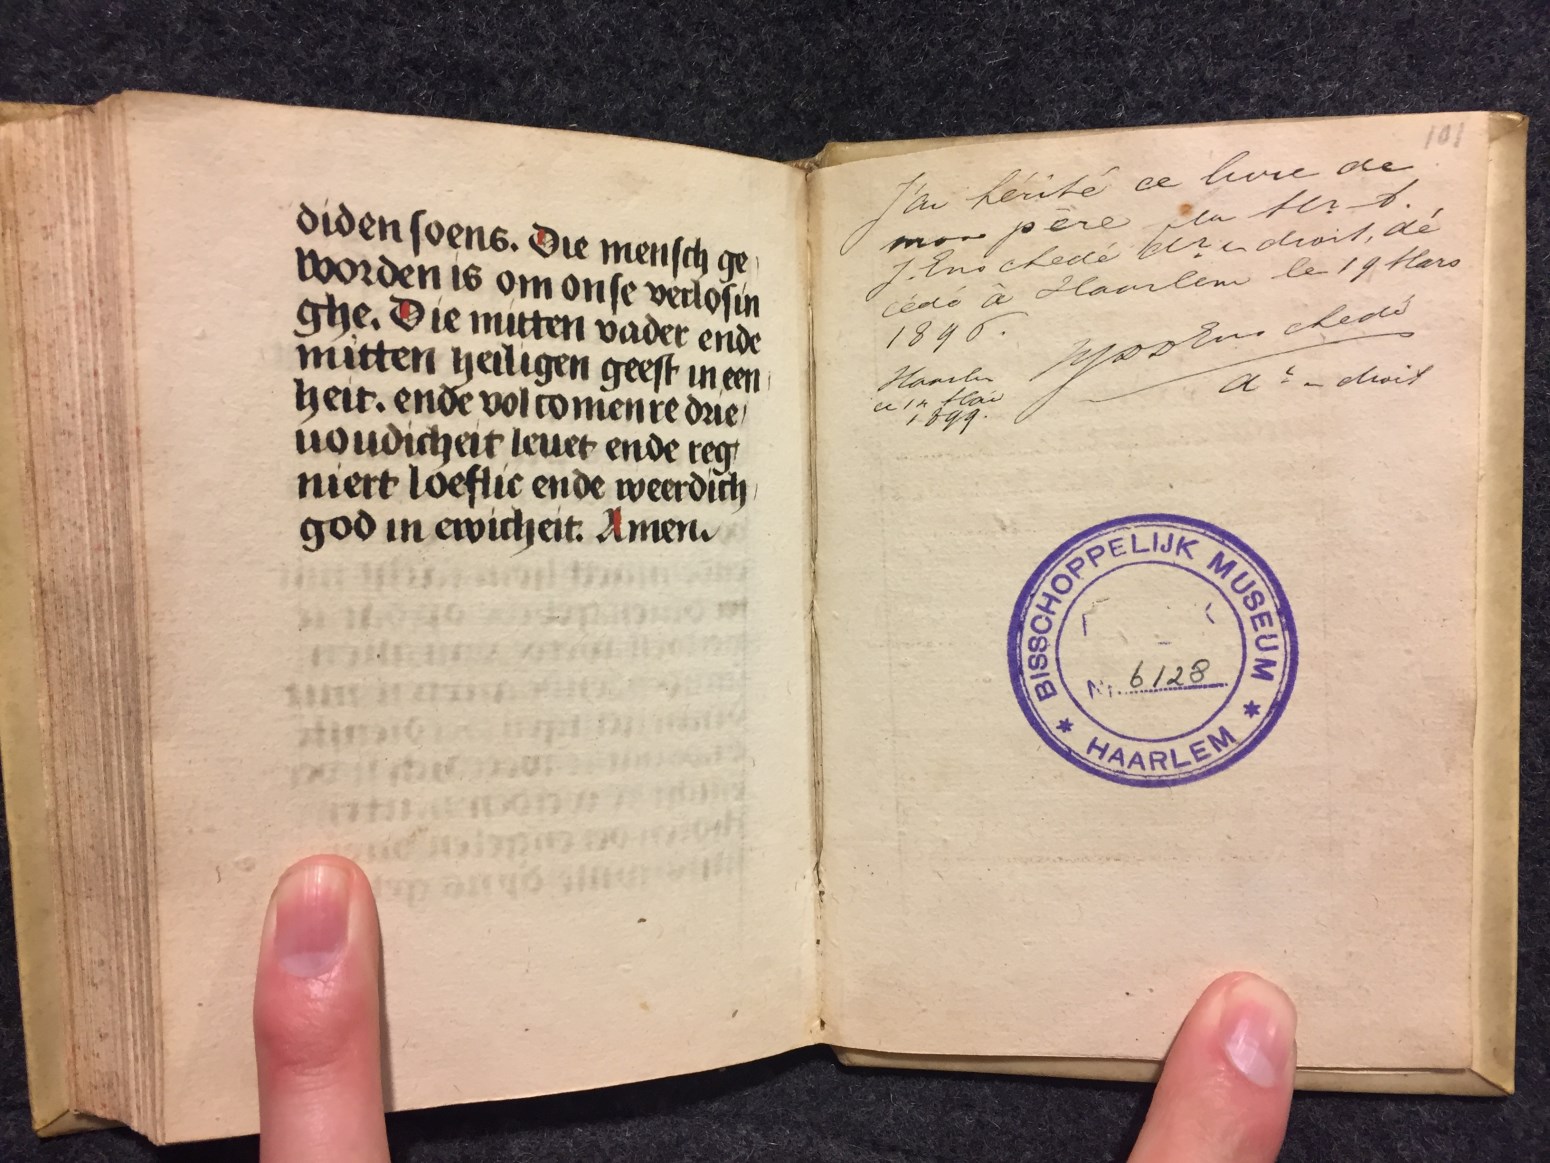 diden soens. Die mensch ge
worden is om onse verlosin
ghe. Die mitten vader ende
mitten heiligen geest in een
heit. ende volcomenre drie
voudicheit levet ende reg
niert loeflic ende weerdich
god in ewicheit. Amen
101
J'ai hérité ce livre de
mon père
J. Enschedé en droit, dé
cédé à Haarlem le 19 Mars
1896.
Enschedé
Dr en droit
Haarlem
1899.
BISSCHOPPELIJK MUSEUM
Nr. 6128
* HAARLEM *